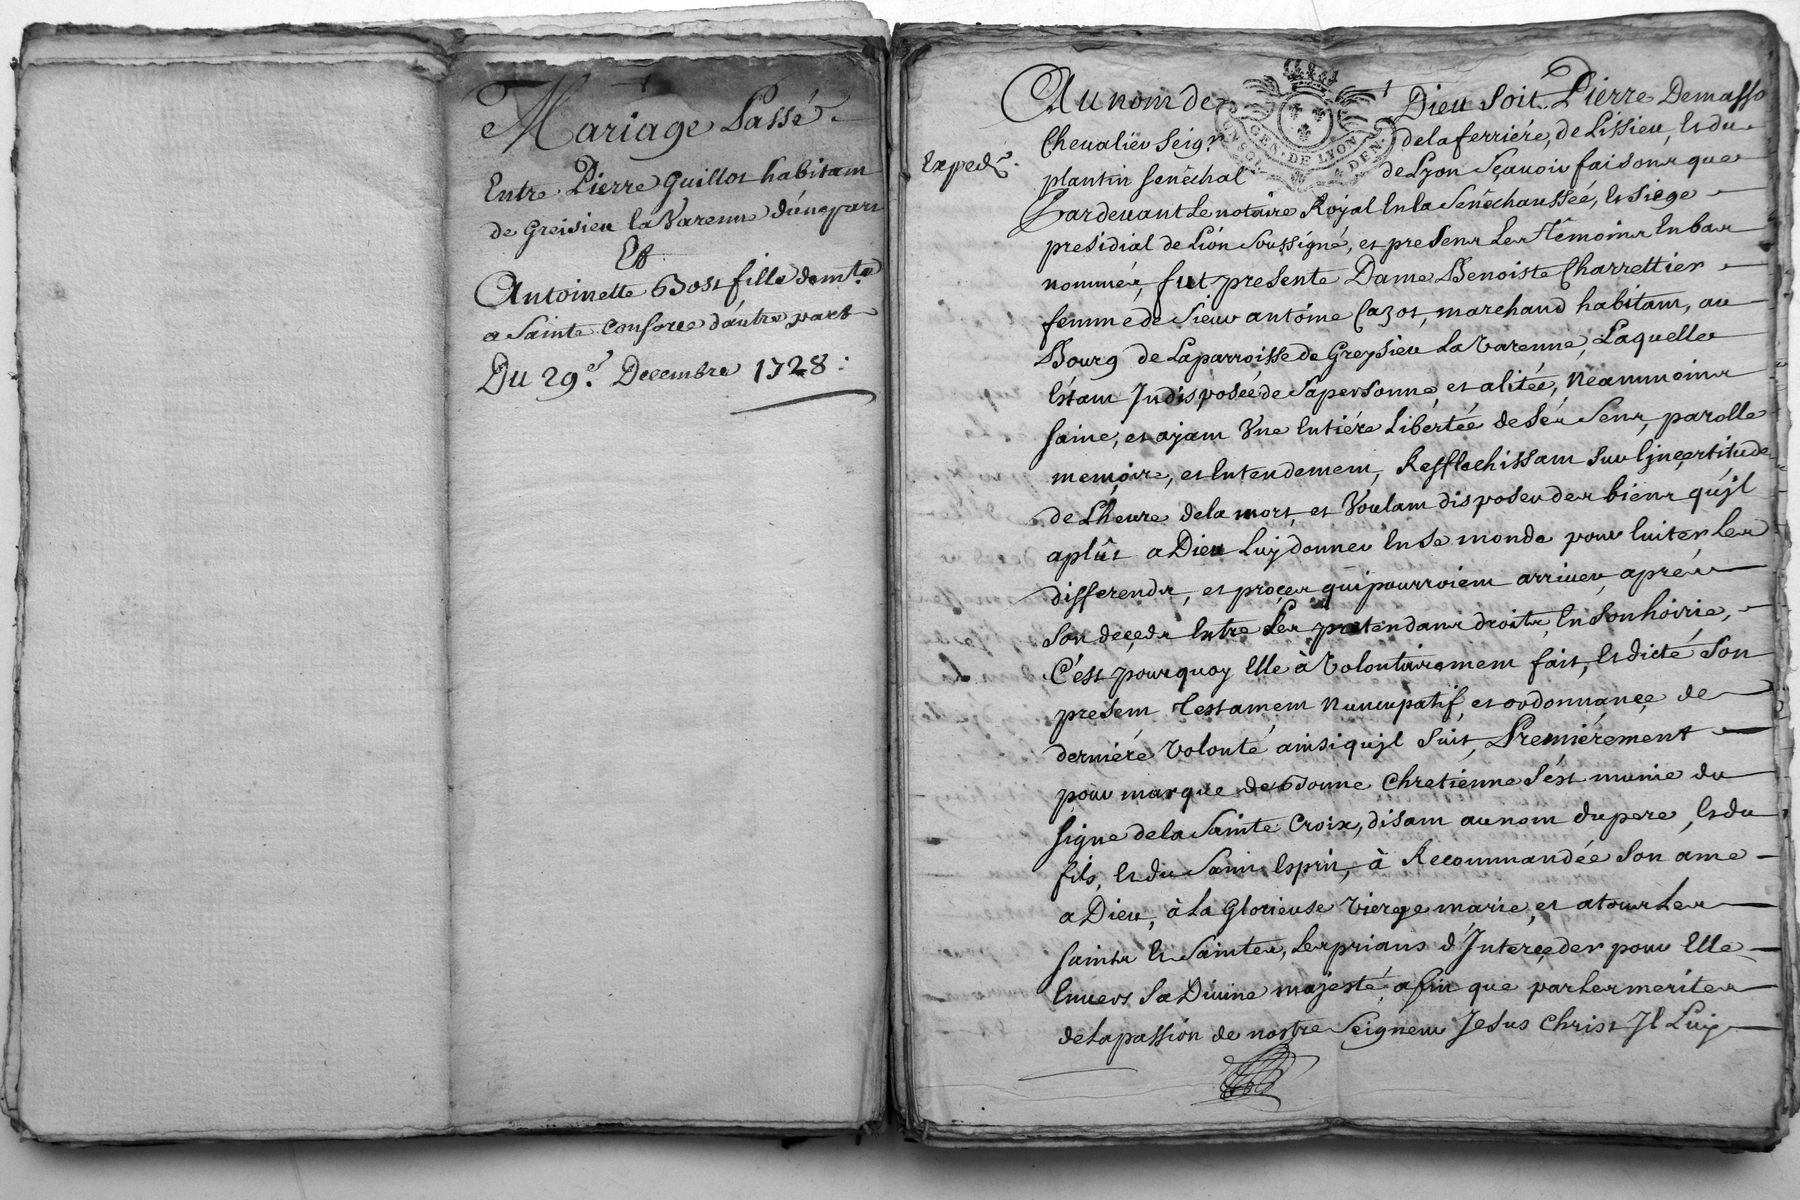 Mariage Passé
Entre Pierre Guillot habitant
de Greisieu la Varenne d'une part
Et
Antoinette Bost fille demte
a Sainte Consorce d'autre part
Du 29e. Decembre 1728 :
Au nom de Dieu soit Pierre Demasso
Chevalier seigr de la ferriére, de Lissieu, et du
Expedé.
plantin senéchal de Lyon sçavoir faisons que
Pardevant Le notaire Royal en la senéchaussée, et siege
presidial de Lion soussigné, et presens Les têmoins en bas
nommés, fut presente Dame Benoiste Charrettier
femme de sieur antóine Cazot, marchand habitant, au
Bourg de Laparroisse de Greysieu La Varenne, Laquelle
éstant Indisposée de sapersonne, et alitée, Neanmmoins
saine, et ajant Vne entiére Libértée de sés sens, parolle
memoire, et entendement, Refflechissant sur l'jnçertitude
de L'heure dela mort, et Voulant disposer des biens qu'jl
aplût a Dieu Luy donner en se monde pour euiter Les
differends, et proçes qui pourroient arriuer, aprés
son deçeds entre Les pretendans droits, en son hoirie,
C'ést pourquoy elle à Volontairement fait, et dicté son
present testament nuncupatif, et ordonnançe de
derniére Volonté ainsi qu'jl suit, Premiérement
pour marque de bonne chretienne s'ést munie du
signe dela sainte Croix, disant au nom du pere, et du
fils, et du saint esprit, à Recommandée son ame
a Dieu, à La Glorieuse Vierge marie, et a tous Les
saints et saintes, Les prians d'Interçeder pour elle
enuers sa Diuine majesté, afin que par Les merites
de La passion de nostre seigneur Jesus Christ Jl Luy
GEN. DE LYON